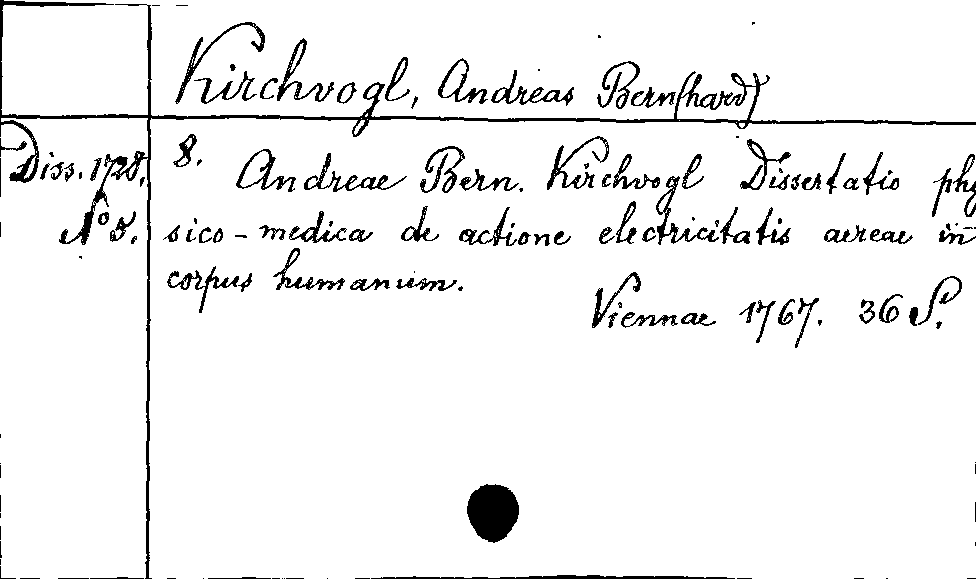 Kirchvogl, Andreas Bern(hard)
Diss. 1728.
No 5.
8.
Andreae Bern. Kirchvogl Dissertatio phy
sico-medica de actione electricitatis aereae in
corpus humanum.
Viennae 1767. 36 S.